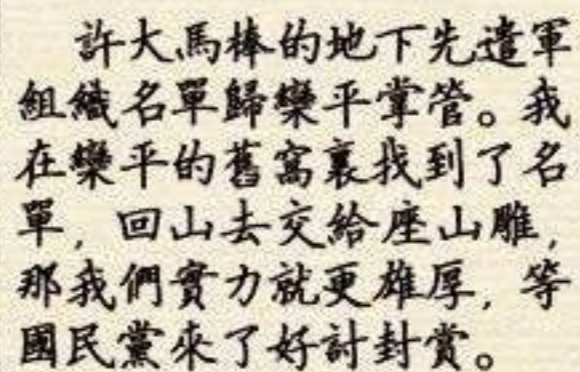 許大馬棒的地下先遣軍
組織名單歸欒平掌管。我
在欒平的舊窩裏找到了名
單，回山去交給座山雕，
那我們實力就更雄厚，等
國民黨來了好討封賞。